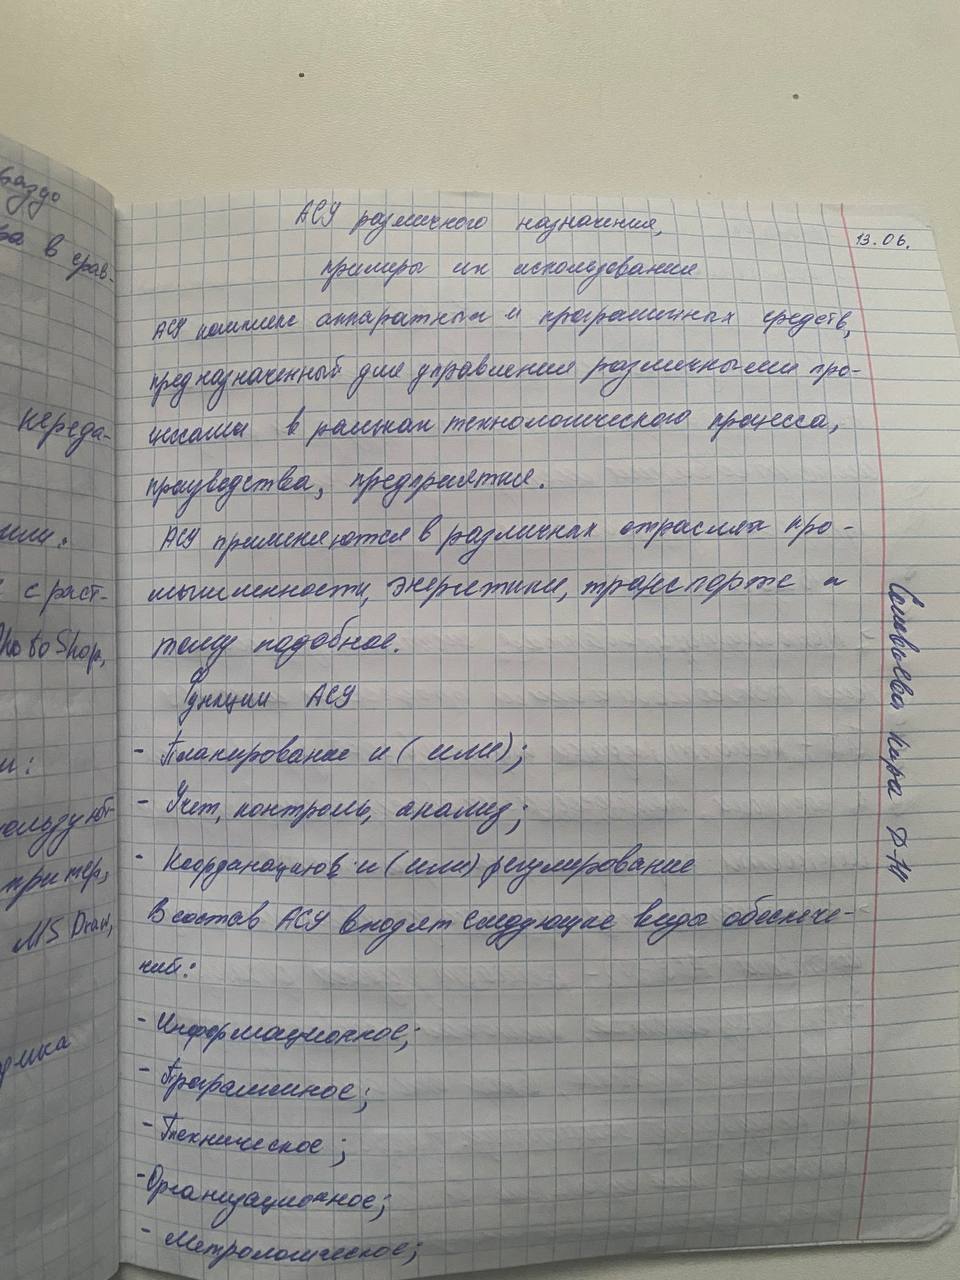 АСУ различного назначения,
примеры их использования
13.06.
АСУ комплекс аппаратных и программных средств,
предназначенный для управления различными про-
цессами в рамках технологического процесса,
производства, предприятия.
АСУ применяются в различных отраслях про-
мышленности, энергетики, транспорте и
тому подобное.
Функции АСУ
- Планирование и (или);
- Учет, контроль, анализ;
- Координацию и (или) регулирование
В состав АСУ входят следующие виды обеспече-
ний:
- Информационное;
- Программное;
- Техническое;
- Организационное;
- Метрологическое;
Соловьева Кира Д-11
ра в срав-
переда-
или.
с раст-
PhotoShop,
и:
ользуют
пример,
MS Draw,